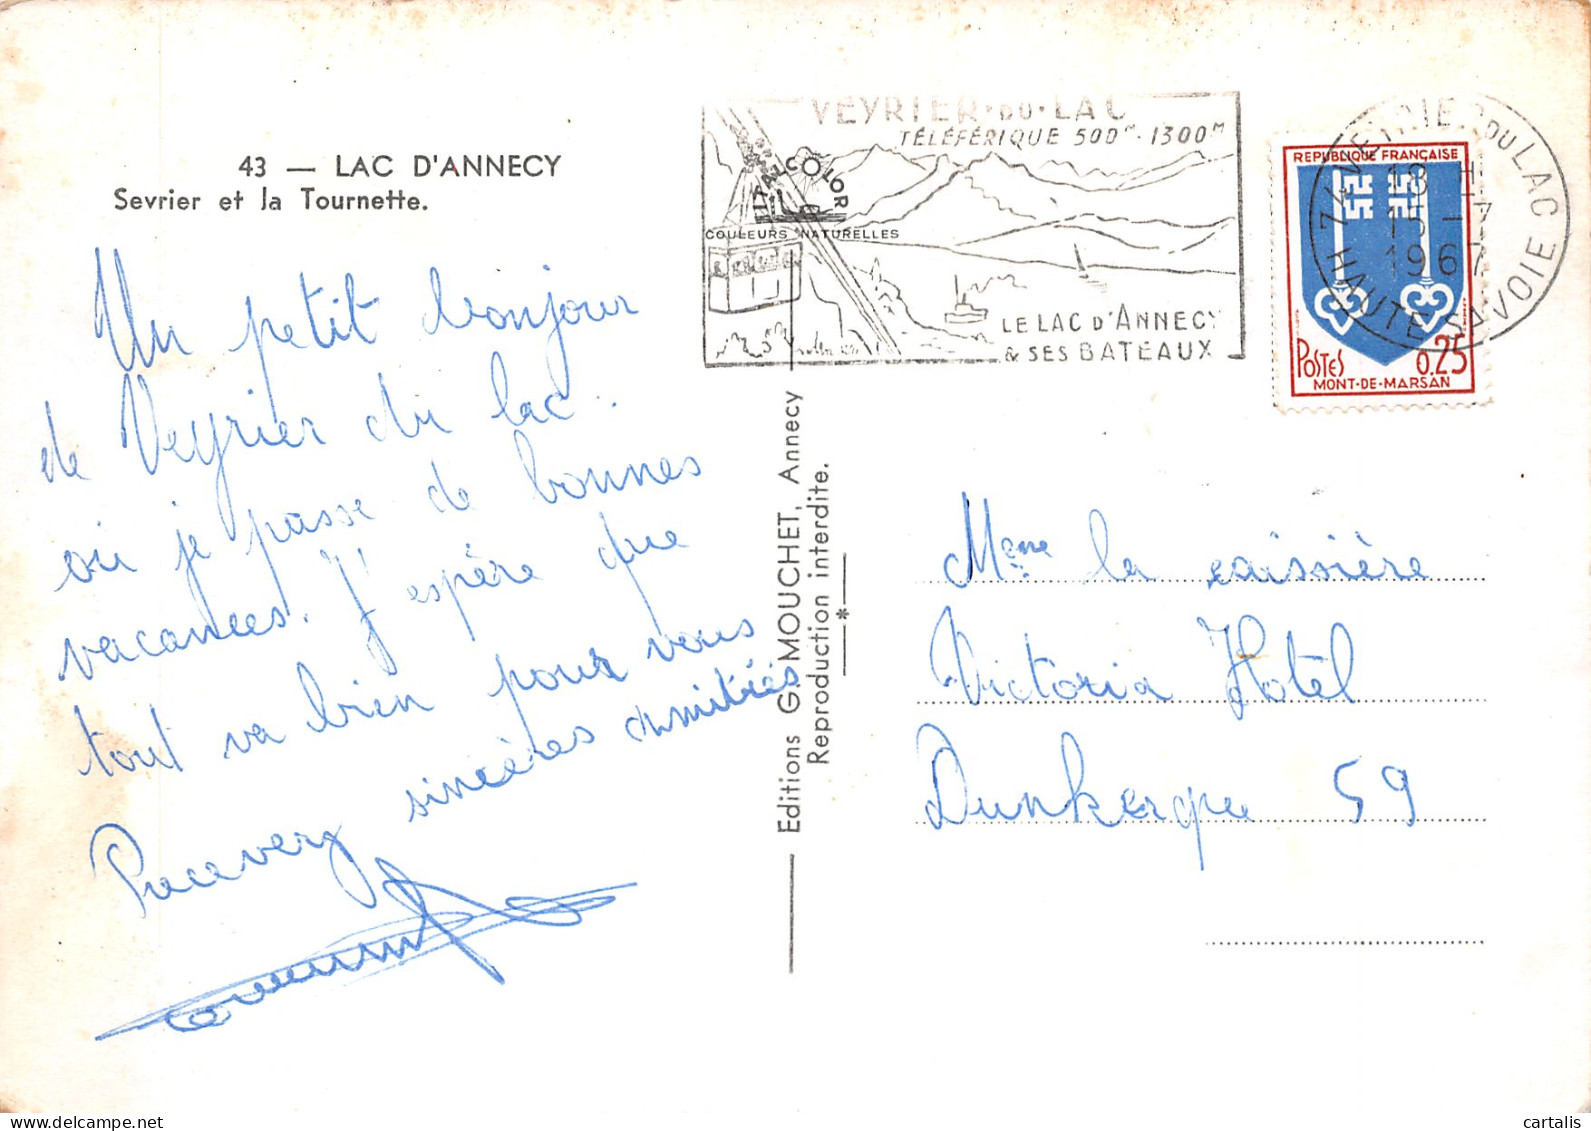 43 — LAC D'ANNECY
Sevrier et la Tournette.
Un petit bonjour
de Veyrier du lac.
où je passe de bonnes
vacances. J'espère que
tout va bien pour vous
sincères amitiés
VEYRIER·DU·LAC
TÉLÉFÉRIQUE 500M - 1300M
ITALCOLOR
COULEURS NATURELLES
LE LAC D'ANNECY
& SES BATEAUX
74 VEYRIER DU LAC
18 H
15 - 7
1967
HAUTE SAVOIE
REPUBLIQUE FRANÇAISE
POSTES 0,25
MONT-DE-MARSAN
Editions G. MOUCHET, Annecy
Reproduction interdite.
Mme la caissière
Victoria Hotel
Dunkerque 59
cartalis
www.delcampe.net